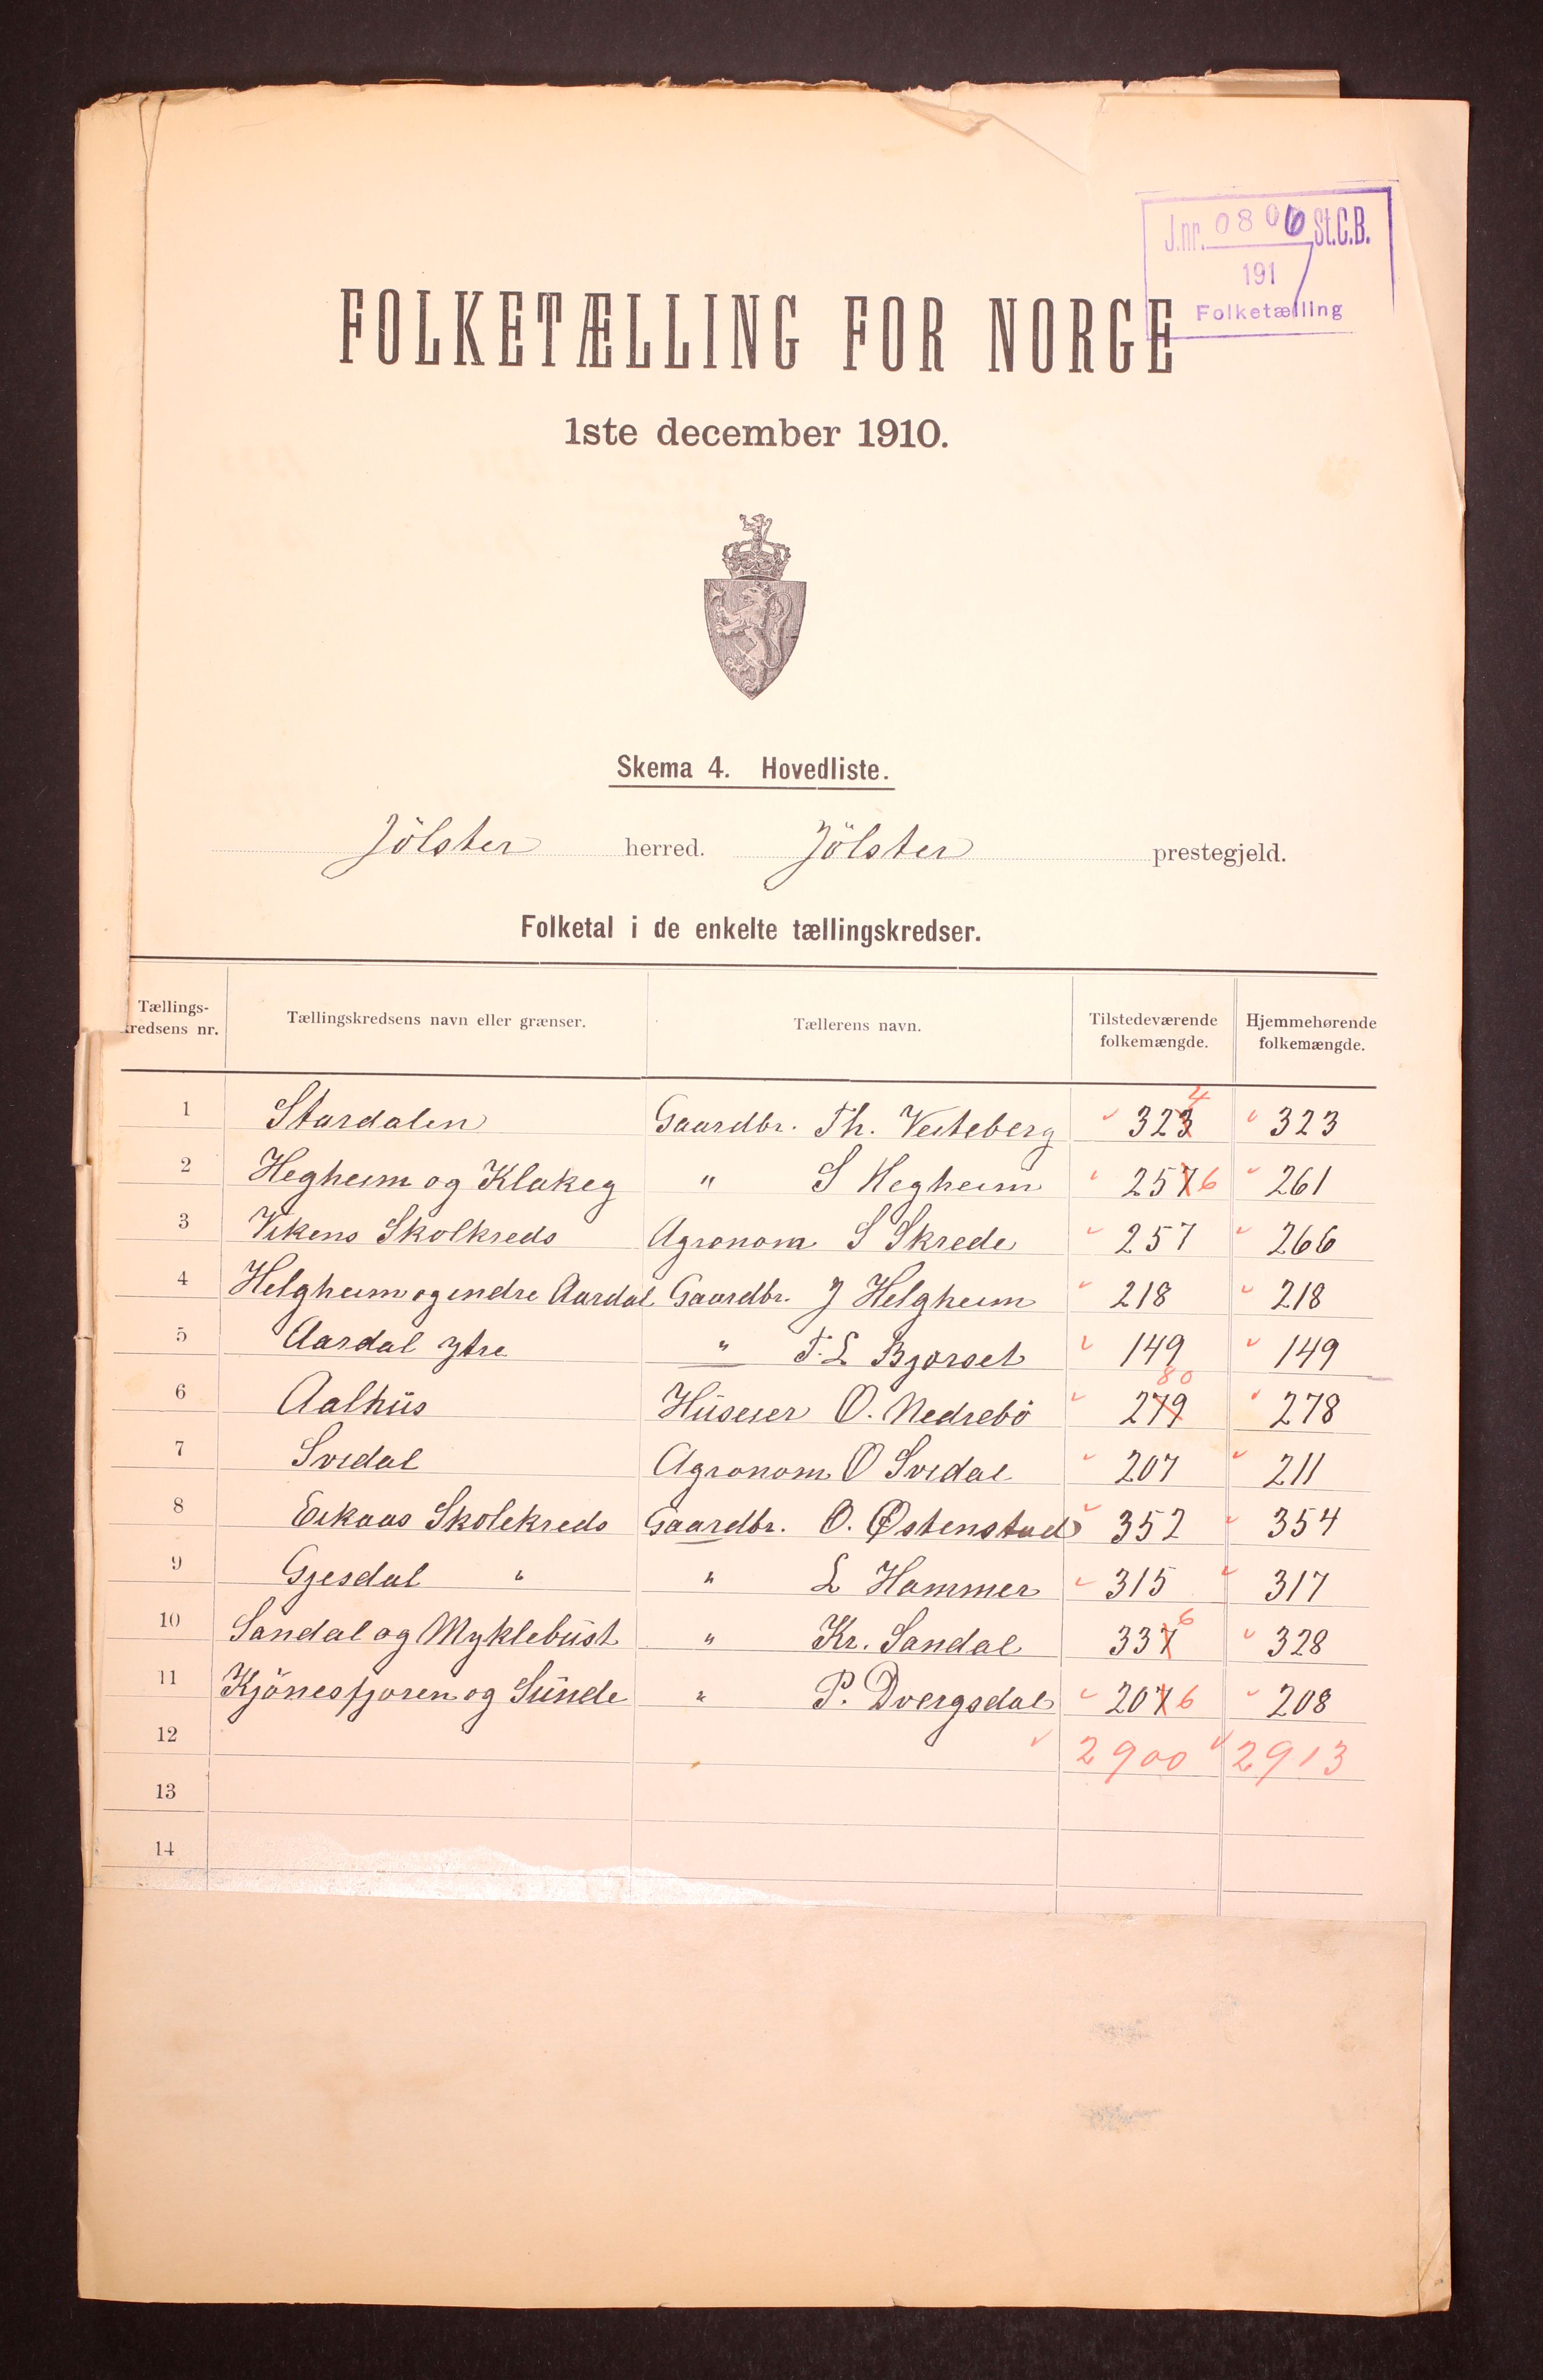 J.nr. 0806 St.C.B.
191
Folketælling
FOLKETÆLLING FOR NORGE
1ste december 1910.
Skema 4. Hovedliste.
Jölster herred. Jölster prestegjeld.
Folketal i de enkelte tællingskredser.
Tællings-
kredsens nr. Tællingskredsens navn eller grænser. Tællerens navn. Tilstedeværende folkemængde. Hjemmehørende folkemængde.
1 Stardalen Gaardbr. Th. Veiteberg 323 4 323
2 Hegheim og Klakeg " S Hegheim 257 6 261
3 Vikens Skolkreds Agronom S Skrede 257 266
4 Helgheim og indre Aardal Gaardbr. J Helgheim 218 218
5 Aardal ytre " T. L Bjørset 149 149
6 Aalhŭs Hŭseier O. Nedrebö 279 80 278
7 Svidal Agronom O Svidal 207 211
8 Eikaas Skolekreds Gaardbr. O. Østenstad 352 354
9 Gjesdal " " L Hammer 315 317
10 Sandal og Myklebŭst " Kr. Sandal 337 6 328
11 Kjösnesfjoren og Sŭnde " P. Dvergsdal 207 6 208
12 2900 2913
13
14